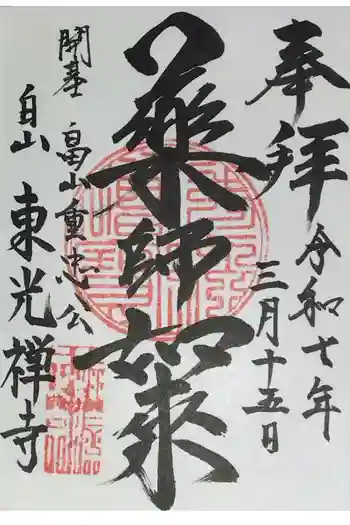 奉拝
令和七年
三月十五日
薬師如来
開基 畠山重忠公
白山 東光禅寺